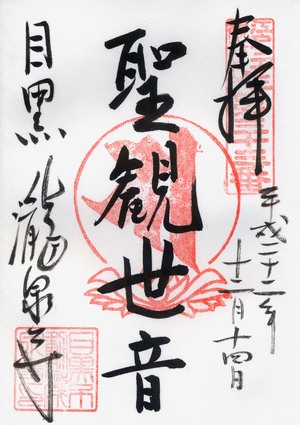 奉拝
平成二十二年
十二月十四日
聖観世音
目黒 瀧泉寺